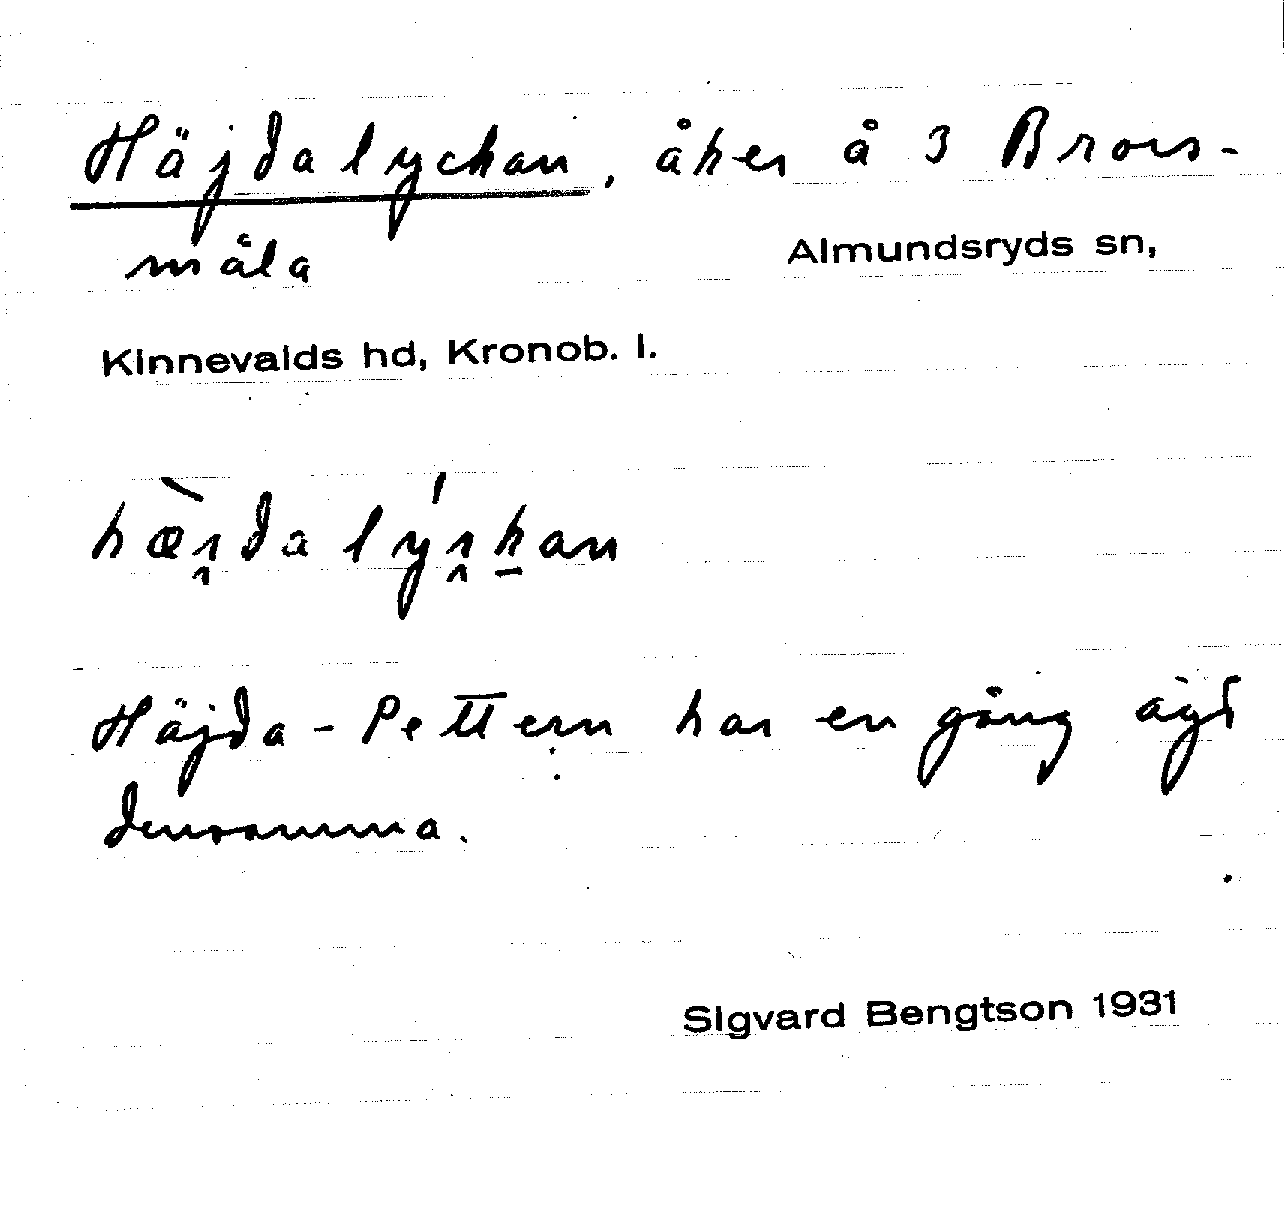 Häjdalyckan, åker å 3 Brors-
måla
Almundsryds sn,
Kinnevalds hd, Kronob. l.
hæ̀i̯da lýi̯k̠an
Häjda-Pettern har en gång ägt
densamma.
Sigvard Bengtson 1931